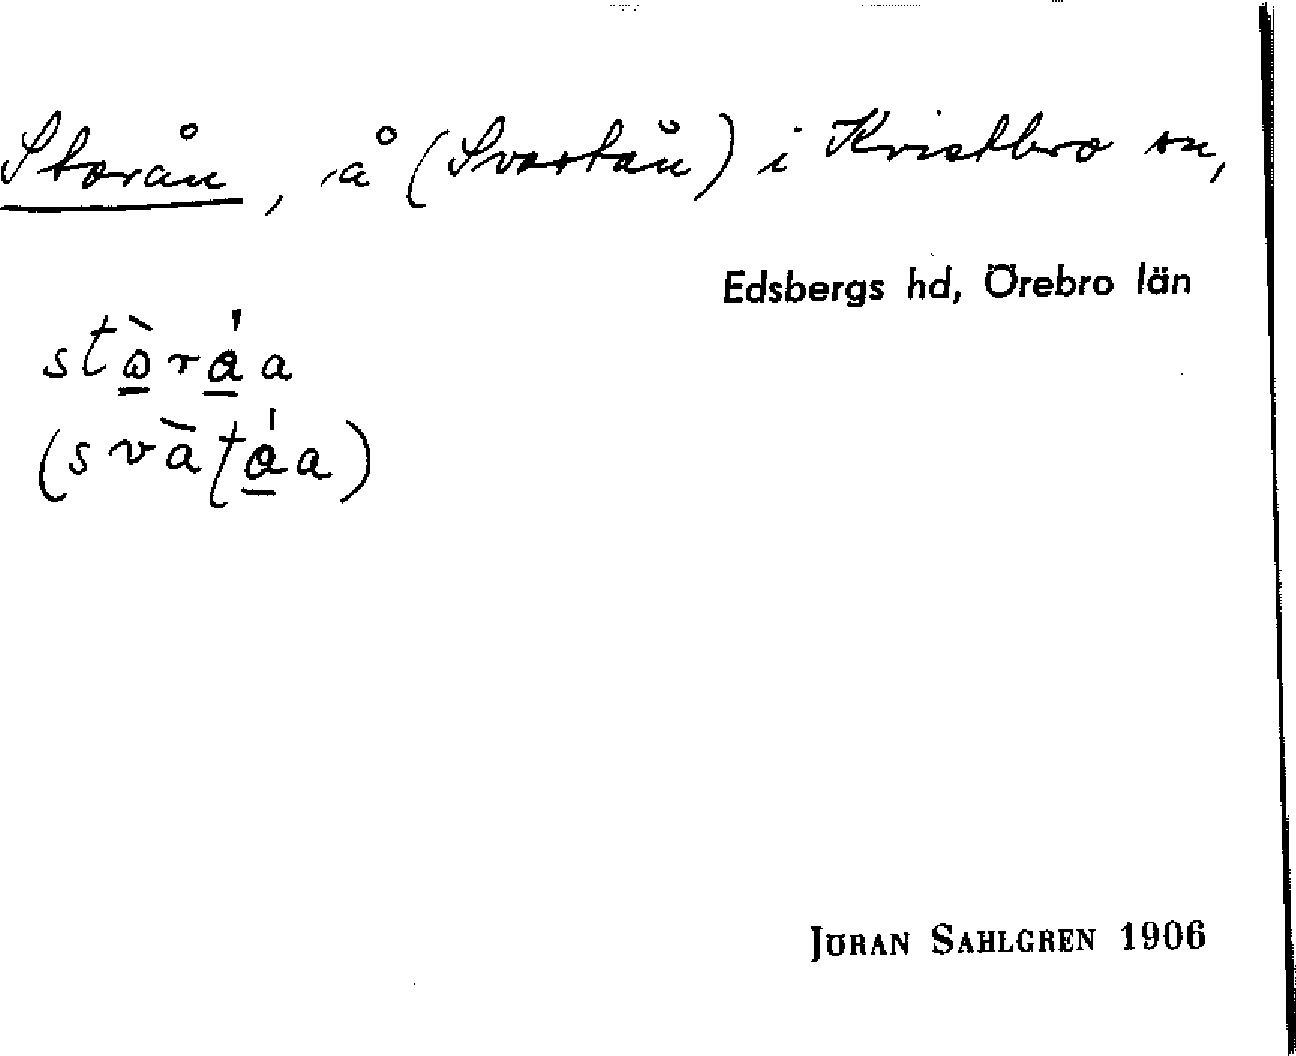 Storån, å (Svartån) i Kristbro sn,
Edsbergs hd, Örebro län
JÖRAN SAHLGREN 1906